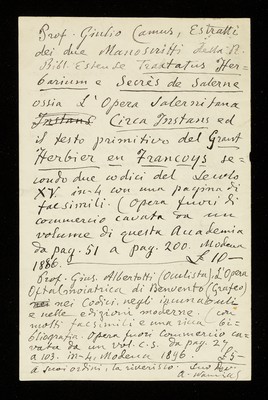 Prof. Giulio Camus, Estratti
dei due Manoscritti della R.
Bibl. Estense Tractatus Her-
barium e Secrès de Salerne
ossia L'Opera Salernitana
Instans Circa Instans ed
il testo primitivo del Grant
Herbier en Francoys se-
condo due codici del Secolo
XV in-4 con una pagina di
facsimili. (Opera fuori di
commercio cavata da un
volume di questa Accademia
da pag. 51 a pag. 200. Modena
1886. £ 10—
Prof. Gius. Albertotti (Oculista), L'Opera
Oftalmoiatrica di Benvento (Grafeo)
nei Codici, negli incunabuli
e nelle edizioni moderne. (con
molti facsimili e una ricca bi-
bliografia. Opera fuori commercio ca-
vata da un vol. c.s. da pag. 27
a 103. in-4, Modena 1896. £ 5—
a suoi ordini, la riverisco. Suo dev.